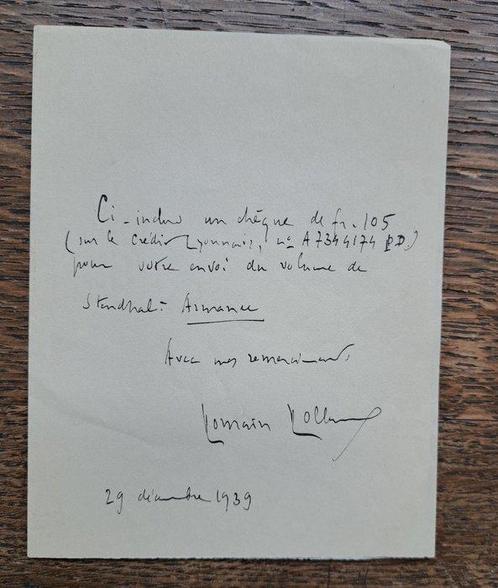 Ci-inclus un chèque de fr. 105
(sur le Crédit Lyonnais, nº A7344174 DD.)
pour votre envoi du volume de
Stendhal : Armance
Avec mes remerciements
Romain Rolland
29 décembre 1939